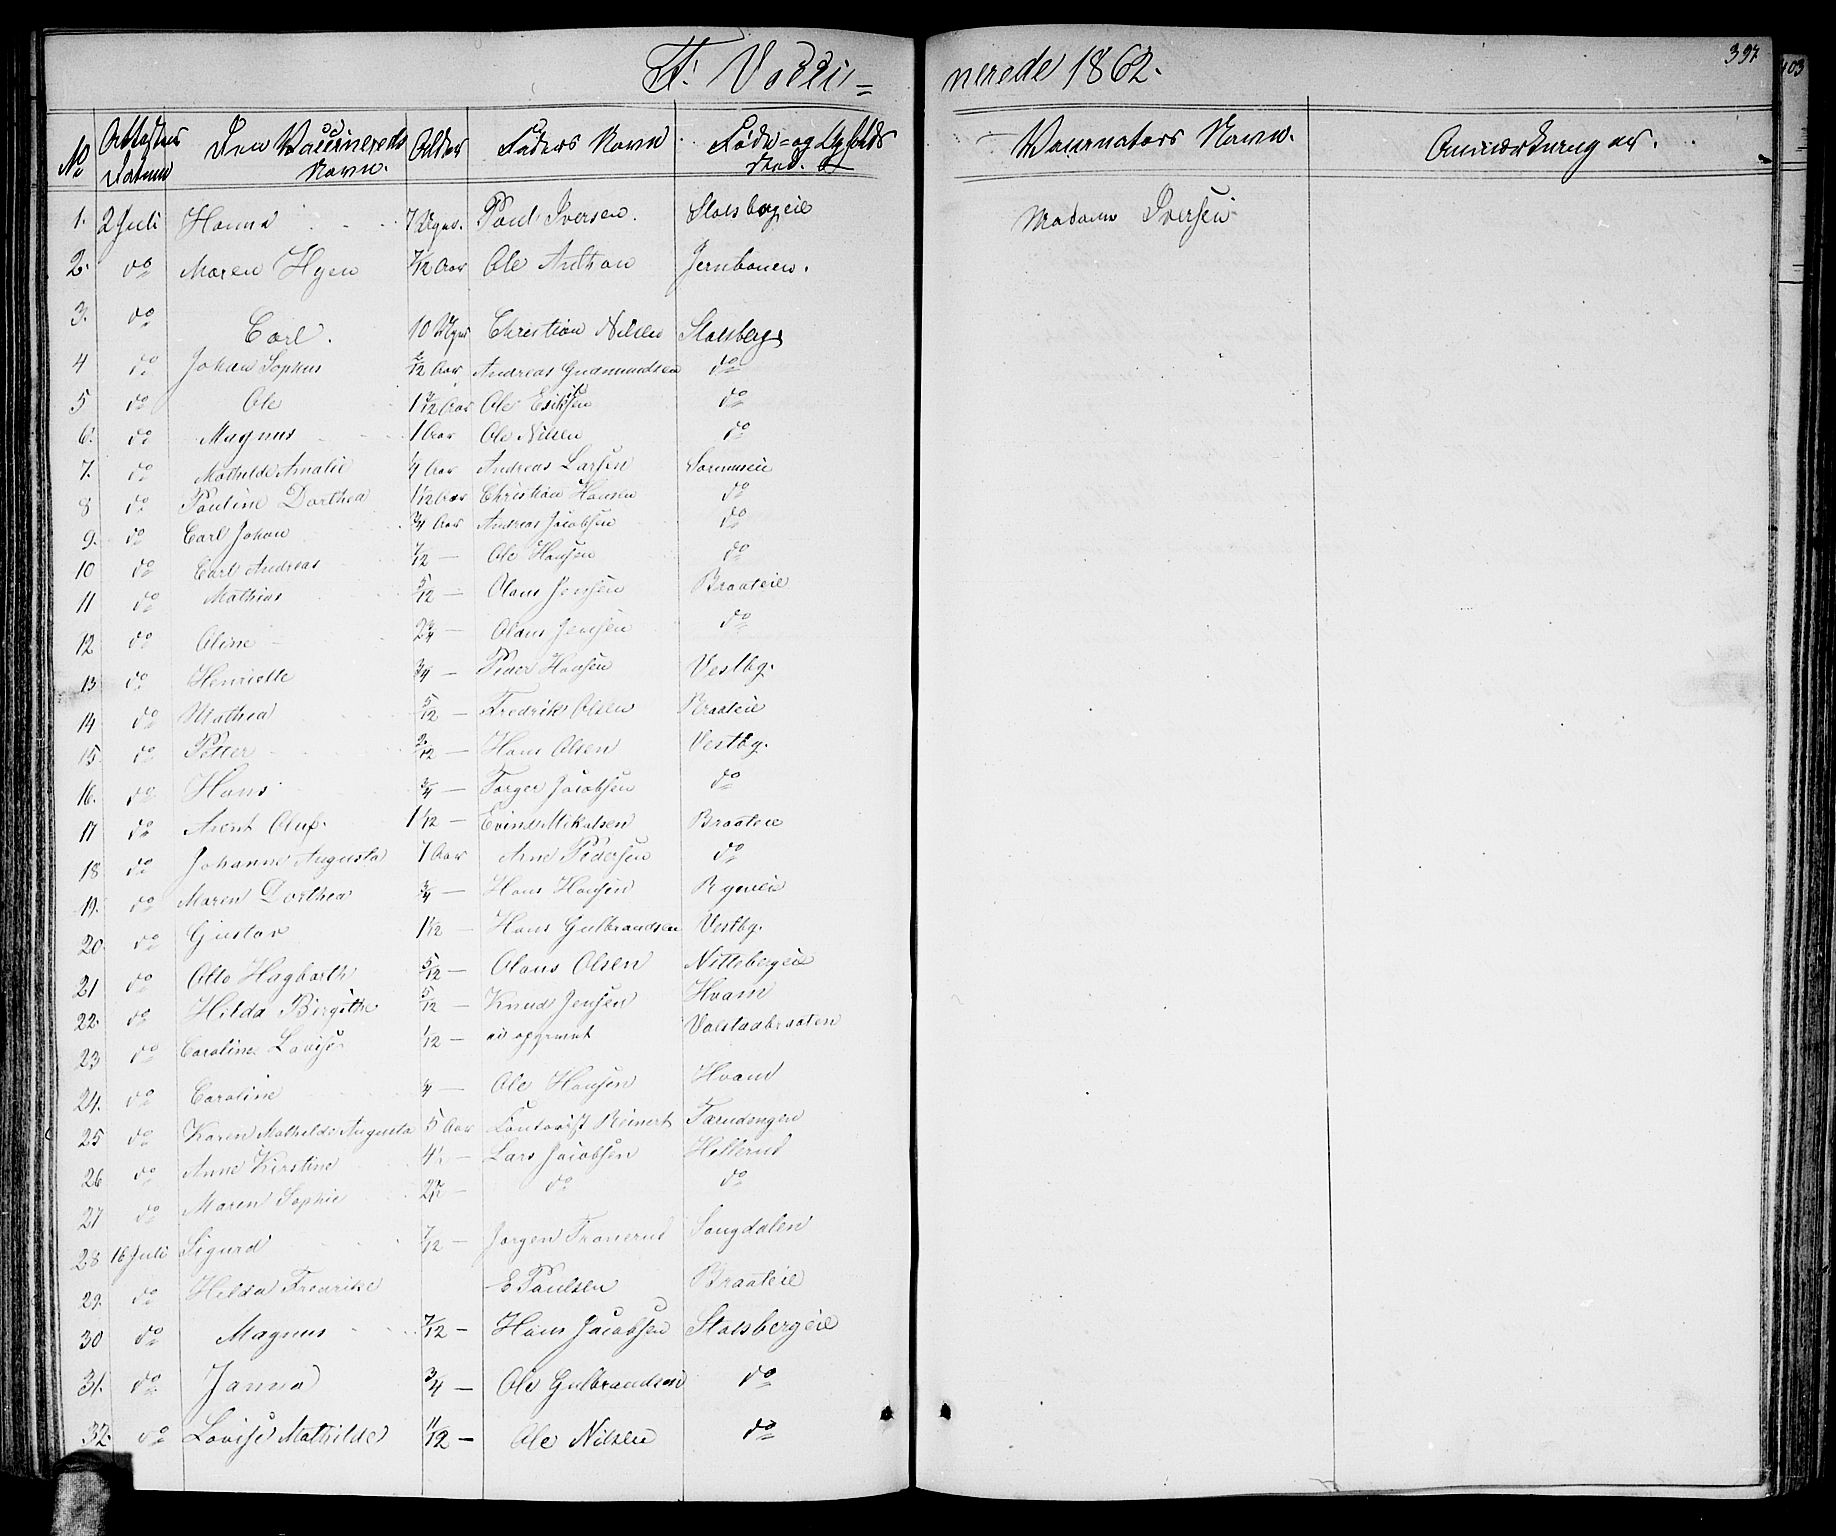 F. Vacci= nerede 1862.
397
403
No Attestens Datum Den Vaccineredes Navn. Alder Faders Navn Føde= og Opholds Sted. Vaccinators Navn. Anmærkninger.
1. 2 Juli Hanna 7 Ugev. Paul Iversen. Stalsbergeie Madame Iversen
2. do Maren Hgen 7/12 Aar Ole Anthon Jernbanen.
3. do Carl. 10 Uger Christian Nilsen Stalsberg
4 do Johan Sophus /12 Aar Andreas Gudmundsen do
5 do Ole 1 /12 Aar Ole Eriksen do
6. do Magnus 1 Aar Ole Nilsen do
7. do Mathilde Amalie 1/4 Aar Andreas Larsen
8 do Pauline Dorthea 1 1/12 Aar Christian Hansen do
9. do Carl Johan 3/4 Aar Andreas Jacobsen do
10 do Carl Andreas 7/12 — Ole Hansen do
11 do Mathias 5/12 — Olaus Jensen Braateie
12 do Oline 2 3/4 — Olaus Jensen do
13 do Henriette 3/4 — Peder Hansen Vestbg.
14 do Mathea 5/12 — Fredrik Olsen Braateie
15. do Petter /12 — Hans Olsen Vestbg.
16. do Hans 3/4 — Torger Jacobsen do
17 do Arent Oluf. 1 1/12 — Evind Mikalsen Braateie
18 do Johanne Augusta 7 Aar Arne Pedersen do
19. do Maren Dorthea 3/4 — Hans Hansen Ryeneie
20 do Gustav 1 1/12 — Hans Gulbrandsen Vestbg.
21 do Otto Hagbarth 5/12 — Olaus Olsen Nittebergeie
22. do Hilda Birgithe 5/12 — Knud Jensen Hvam
23 do Caroline Lovise 1/12 — ei opgivet Valstadbraaten
24. do Caroline 3/4 — Ole Hansen Hvam
25 do Karen Mathilde Augusta 5 Aar Reinert
26 do Anne Kirstine 4 — Lars Jacobsen Hellerud
27 do Maren Sophie 2 — do do
28 16 Juli Sigurd 7/12 — Jørgen Tranerud Sangdalen
29. do Hilda Fredrike E Paulsen Braateie
30 do Magnus 7/12 — Hans Jacobsen Stalsbergeie
31. do Janna 3/4 — Ole Gulbrandsen do
32. do Lovise Mathilde 11/12 — Ole Nilsen do